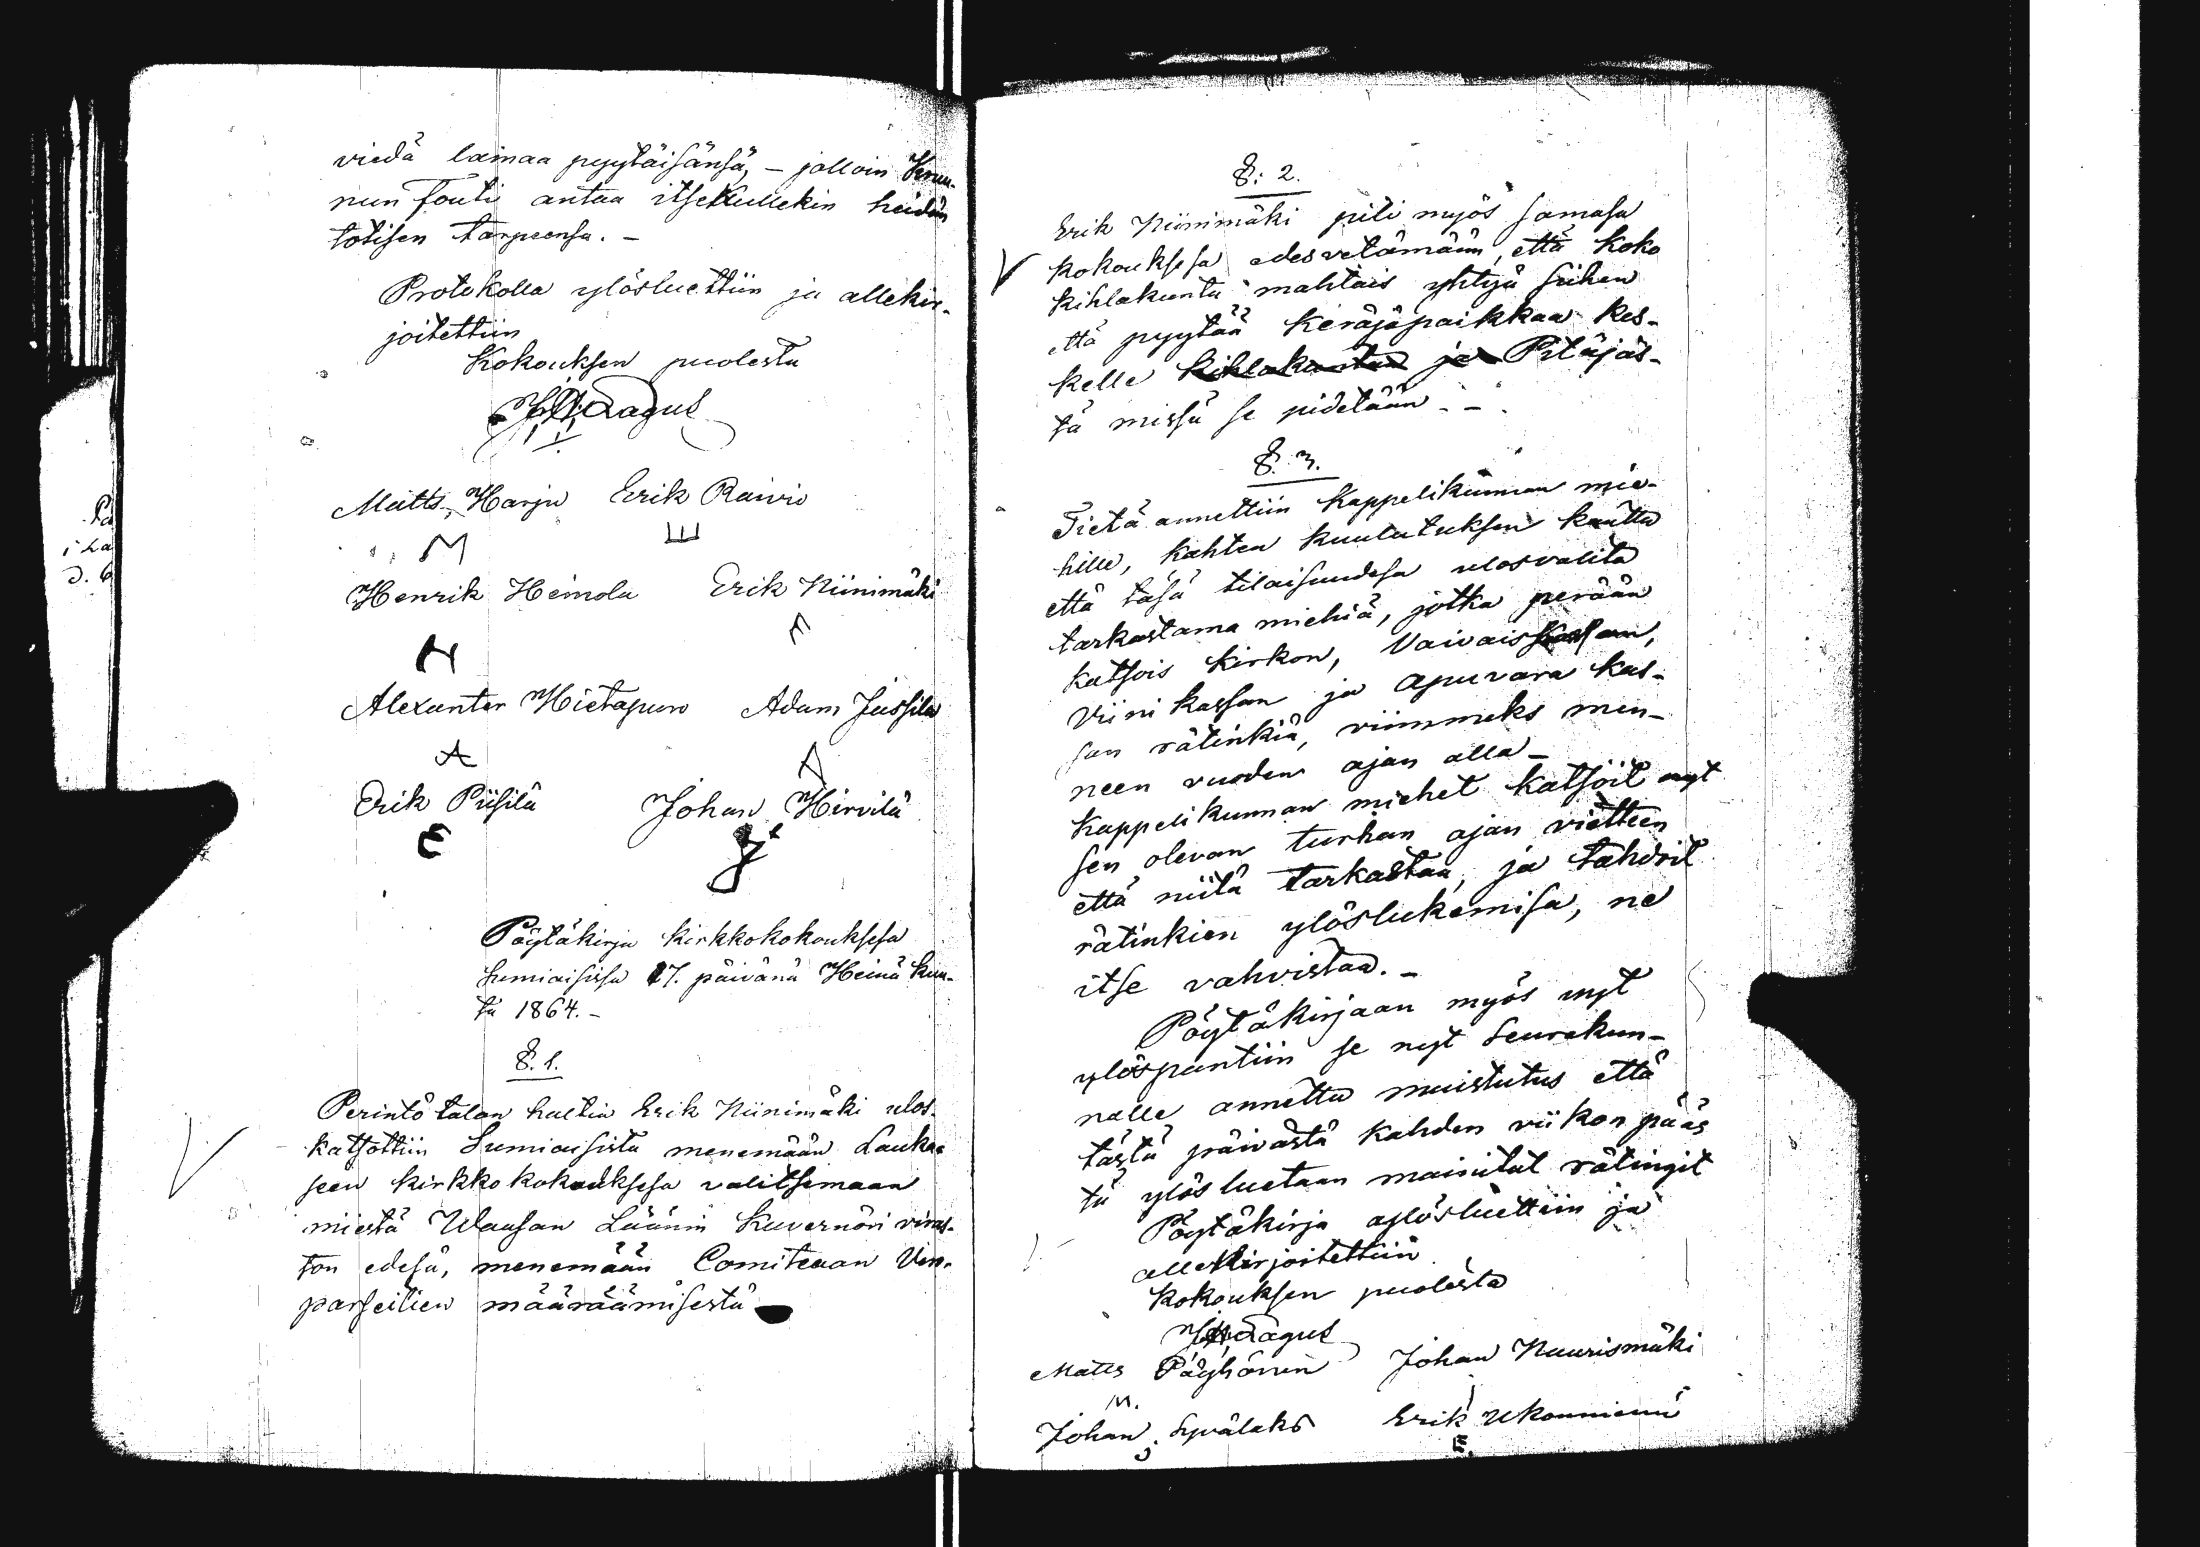 viedä lainaa pyytäisänsä, – jolloin Kruu-
nun fouti antaa itsekullekin heidän
totisen tarpeensa. –
Protokolla ylösluettiin ja allekir-
joitettiin
Kokouksen puolesta
Matts Harju Erik Raivio
M E
Henrik Heinola Erik Niinimäki
H E
Alexanter Hietapuro Adam Jussila
A A
Erik Piisilä Johan Hirvilä
E J
Pöytäkirja kirkkokokouksesa
Sumiaisissa 17. päivänä Heinä kuu-
ta 1864. –
§. 1.
Perintö talon haltia Erik Niinimäki ulos-
katsottiin Sumiaisista menemään Laukaa
seen kirkko kokouksesa valitsemaan
miestä Waasan Läänin Kuvernöri viras-
ton edesä, menemään Comiteaan
parseelien määräämisestä
§: 2.
Erik Niinimäki piti myös samasa
kokouksesa edesvetämään, että koko
kihlakunta mahtais yhtyä siihen
että pyytää Keräjäpaikkaa kes-
kelle kihlakuntaa ja Pitäjäs-
tä missä se pidetään. –
§. 3.
Tietä annettiin Kappelikunnan mie-
hille, kahten kuulutuksen kautta
että täsä tilaisuudesa ulosvalita
tarkastama miehiä, jotka perään
katsois kirkon, Vaivaiskassan,
Viini kassan ja Apuvara kas-
san rätinkiä, viimmeks men-
neen vuoden ajan alla –
Kappelikunnan miehet katsoit nyt
sen olevan turhan ajan vietteen
että niitä tarkastaa, ja tahdoit
rätinkien ylöslukemisa, ne
itse vahvistaa. –
Pöytäkirjaan myös nyt
ylöspantiin se nyt Seurakun-
nalle annettu muistutus että
tästä päivästä kahden viikon pääs
tä ylös luetaan mainitut rätingit
Pöytäkirja ylösluettiin ja
allekirjoitettiin
Kokouksen puolesta
Matts Pöyhönen Johan Nuurismäki
M.
Johan Syvälaks Erik Ukonniemi
J E.